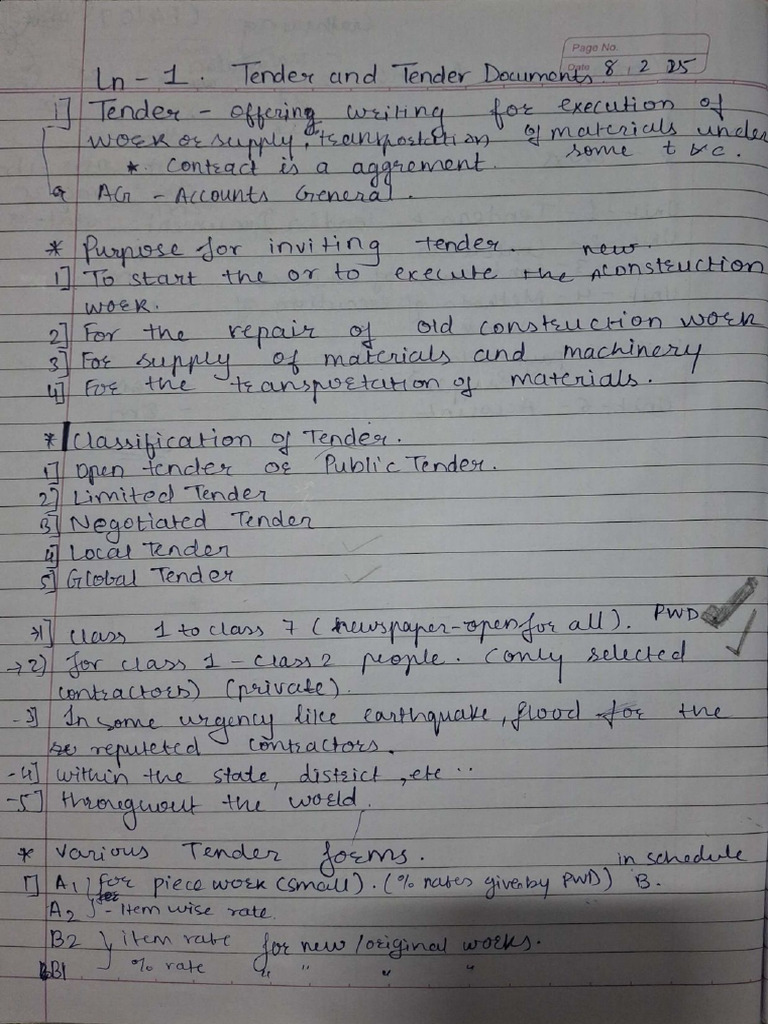 Page No.
Date 8 . 2 25
Ln - 1 . Tender and Tender Documents
1] Tender - offering writing for execution of
work or supply, transpostation of materials under
some t & c.
* Contract is a aggrement.
AG - Accounts General.
* Purpose for inviting tender.
new
1] To start the or to execute the ^construction
work.
2] For the repair of old construction work
3] For supply of materials and machinery
4] For the transportation of materials.
* Classification of Tender.
1] Open tender or Public Tender.
2] Limited Tender
3] Negotiated Tender
4] Local Tender
5] Global Tender
*1] class 1 to class 7 (newspaper-open for all). PWD
→2) for class 1 - class 2 people. (only selected
contractors) (private).
-3] In some urgency like earthquake, flood for the
reputeted contractors.
-4] within the state, district, etc ..
-5] througwout the world.
* Various Tender forms.
in schedule
1] A1 } for piece work (small). (% rates given by PWD) B.
A2 } - Item wise rate.
B2 } item rate for new / original works.
B1 } % rate " " " "